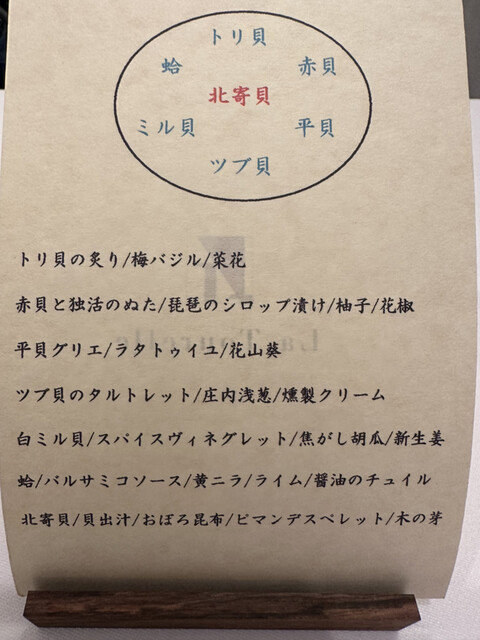 トリ貝
蛤 赤貝
北寄貝
ミル貝 平貝
ツブ貝
トリ貝の炙り/梅バジル/菜花
赤貝と独活のぬた/琵琶のシロップ漬け/柚子/花椒
平貝グリエ/ラタトゥイユ/花山葵
ツブ貝のタルトレット/庄内浅葱/燻製クリーム
白ミル貝/スパイスヴィネグレット/焦がし胡瓜/新生姜
蛤/バルサミコソース/黄ニラ/ライム/醤油のチュイル
北寄貝/貝出汁/おぼろ昆布/ピマンデスペレット/木の芽